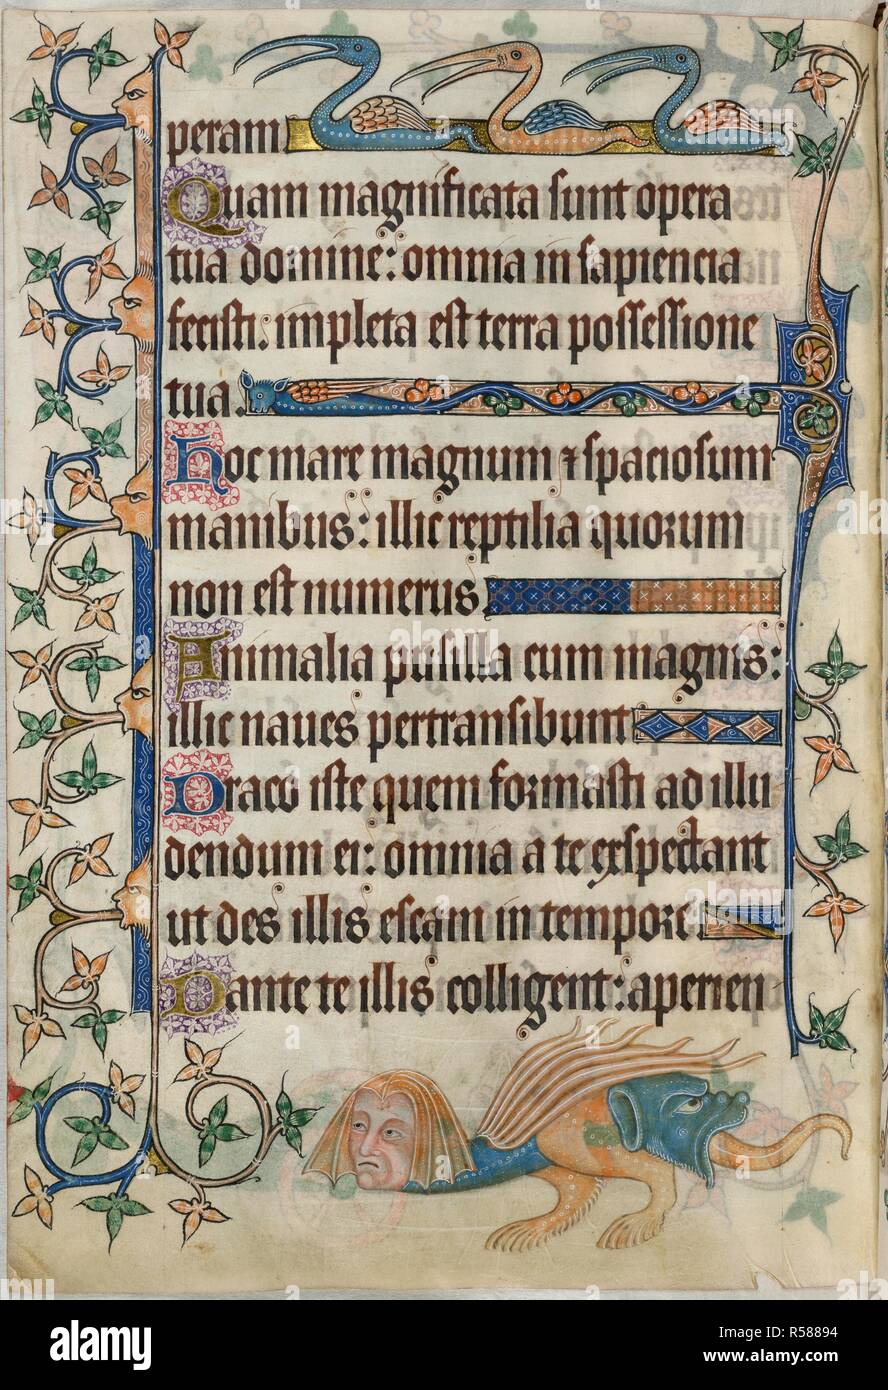 peram.
Quam magnificata sunt opera
tua domine: omnia in sapiencia
fecisti: impleta est terra possessione
tua.
Hoc mare magnum ⁊ spaciosum
manibus: illic reptilia quorum
non est numerus.
Animalia pusilla cum magnis:
illic naues pertransibunt
Draco iste quem formasti ad illu
dendum ei: omnia a te exspectant
ut des illis escam in tempore.
Dante te illis colligent: aperien
a alamy stock photo
alamy
Image ID: R58894
www.alamy.com